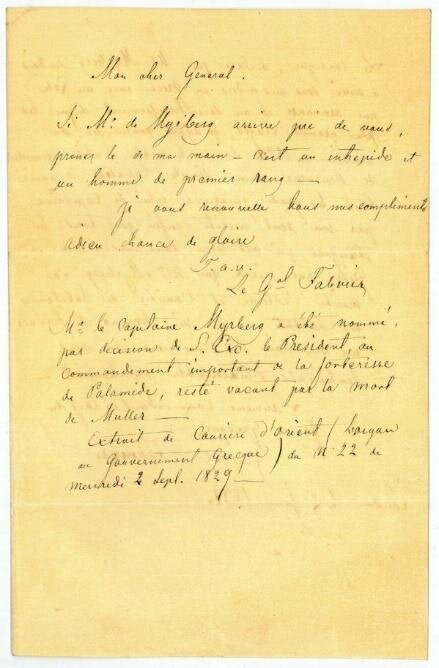 Mon cher General.
Si Mr. de Myrberg arrive pre de vous,
prenez le de ma main – c'est un intrepide et
un homme de premier rang –
je vous renouvelle tous mes compliments
adieu chances de gloire
T. a. v.
Le Gal Fabvier
Mr. le Capitaine Myrberg a été nommé,
par décision de S. Exc. le President, au
commandement important de la forteresse
de Palamide, resté vacant par la mort
de Muller —
Extrait de Courier d'Orient (l'organ
au Gouvernement Grecque) du N. 22 de
mercredi 2 Sept. 1829 —